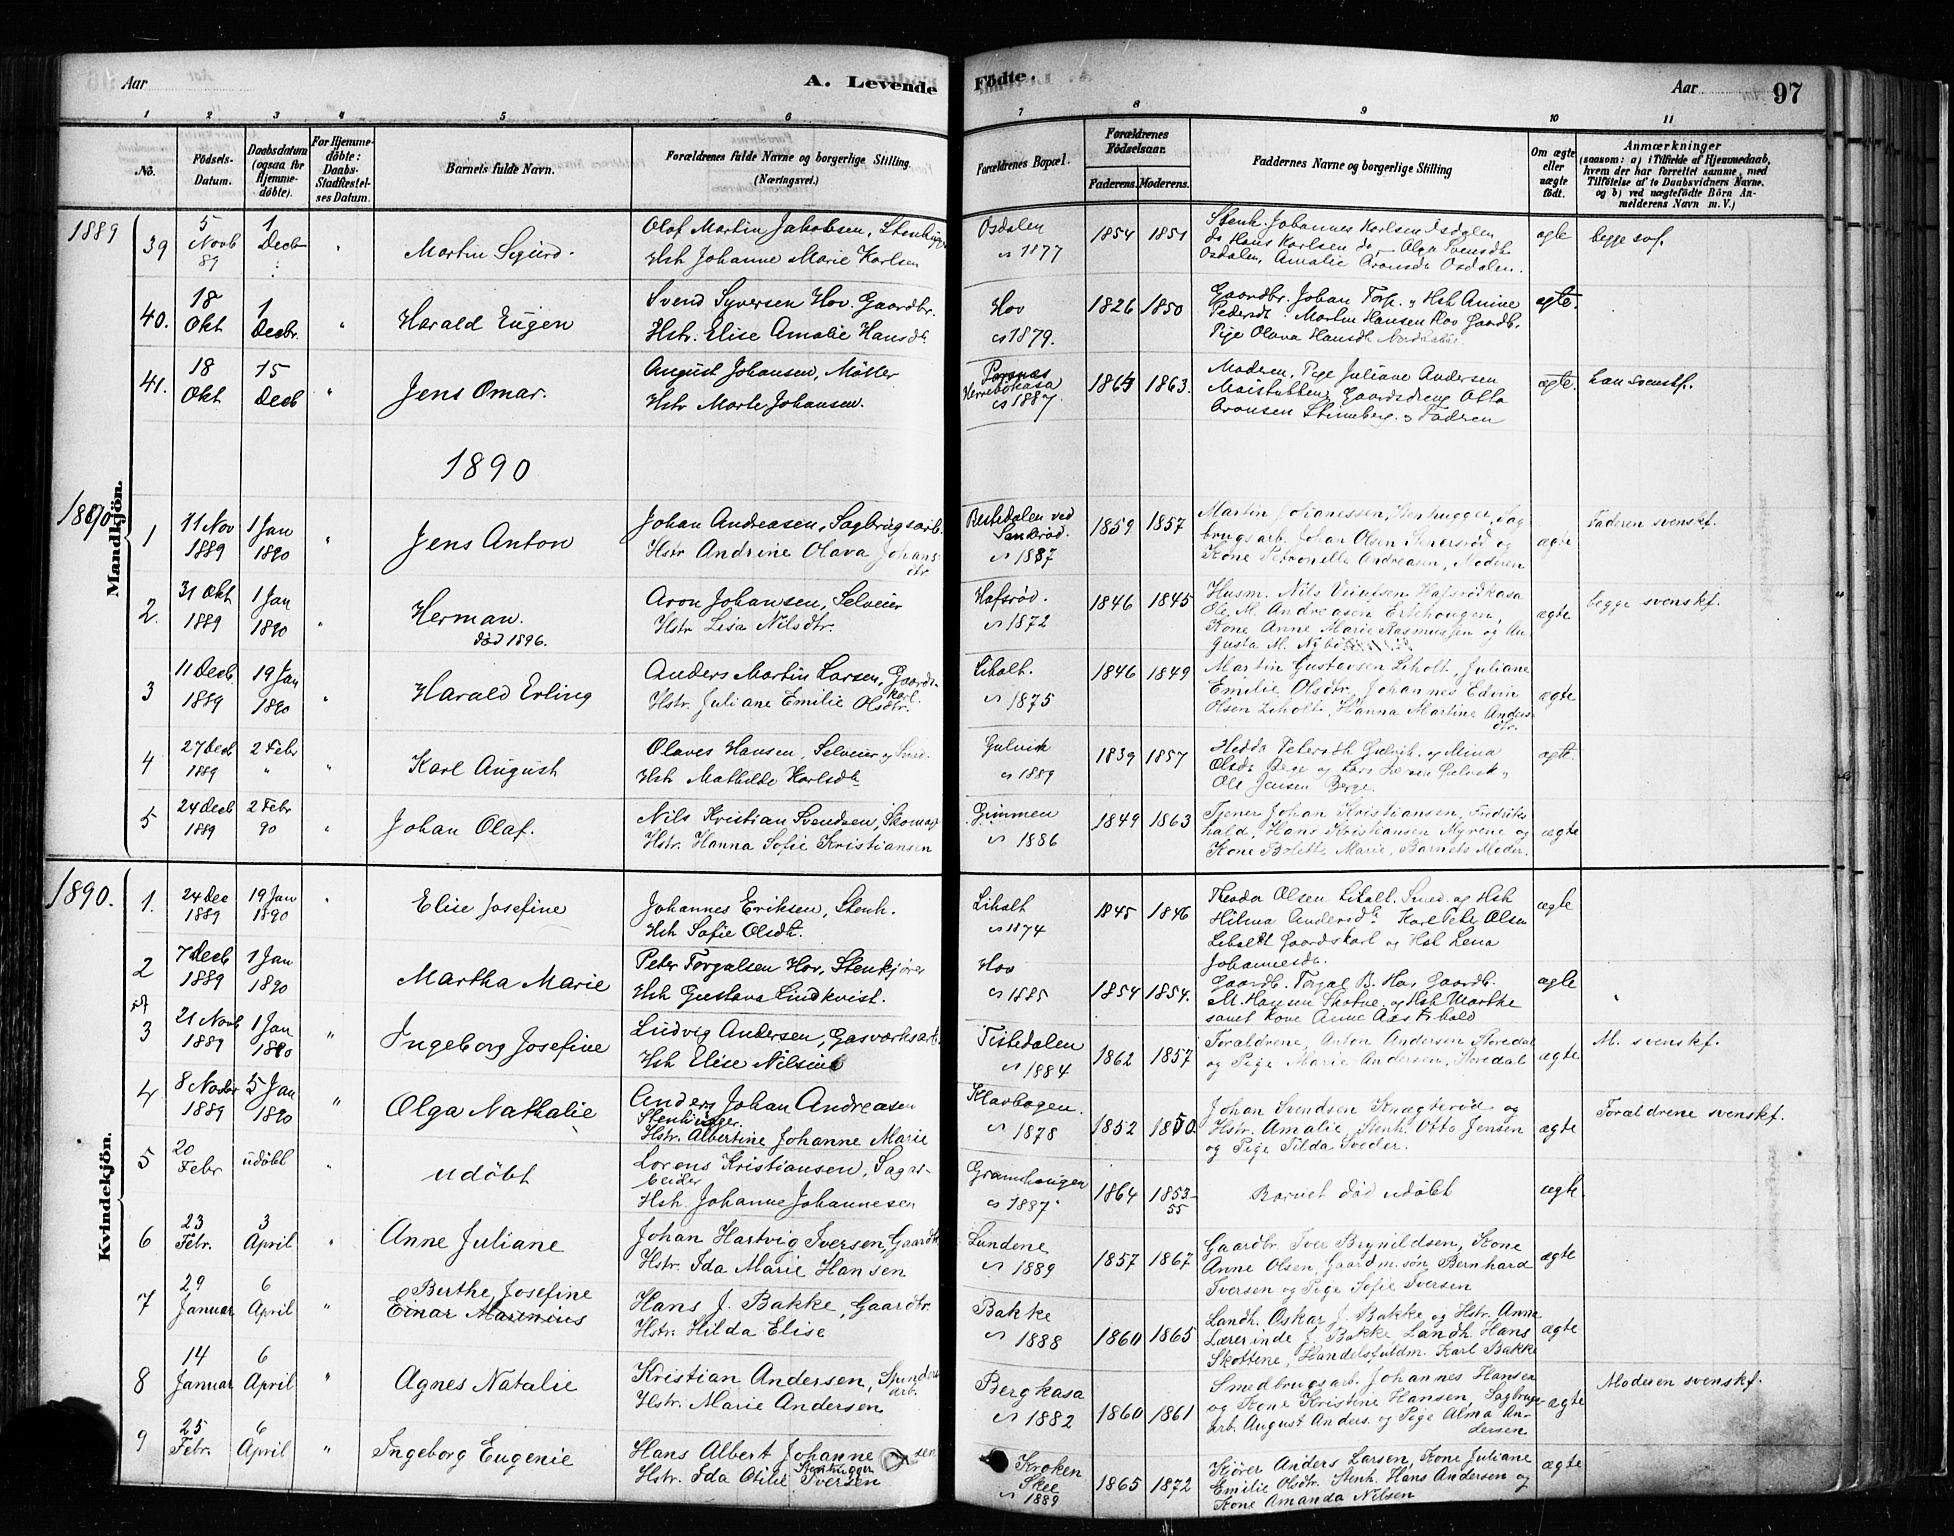 Aar
A. Levende
Födte.
Aar
97
1 2 3 4 5 6 7 8 9 10 11
No.
Födsels-Datum.
Daabsdatum (ogsaa for Hjemmedöbte).
For Hjemmedöbte: Daabs-Stadfestelses Datum.
Barnets fulde Navn.
Forældrenes fulde Navne og borgerlige Stilling (Næringsvei.)
Forældrenes Bopæl.
Forældrenes Födselsaar.
Faderens. Moderens.
Faddernes Navne og borgerlige Stilling
Om ægte eller uægte födt.
Anmærkninger
(saasom: a) i Tilfælde af Hjemmedaab, hvem der har forrettet samme, med Tilföielse af to Daabsvidners Navne, og b) ved uægtefödte Börn Anmelderens Navn m. V.)
Mandkjön.
1889
39 5 Novb 89 1 Decb " Martin Sigurd.
Olaf Martin Jakobsen, Stenhugg
Hst Johanne Marie Karlsen
Osdalen 1877 1854 1851
Stenh. Johannes Karlsen Osdalen,
do Hans Karlsen do, Olga Svensdt
Osdalen, Amalie Aronsdt Osdalen.
ægte begge svf.
40. 18 Okt 1 Decbr. " Harald Eugen
Svend Syversen Hov. Gaardbr.
Hstr. Elise Amalie Hansdt.
Hov 1879. 1826 1850
Gaardbr. Johan Torp. og Hst Anine
Pedersdt Martin Hansen Hov Gaardb.
Pige Olava Hansdt
ægte.
41. 18 Okt 15 Decb " Jens Omar.
August Johansen, Møller
Hstr Marte Johansen.
Herrebøkasa 1887 1864 1863.
Moderen, Pige Juliane Andersen
Gaardsdreng Otto
Aronsen Stenberg. og Faderen
ægte. han svenskf.
1890
1890
1 11 Nov 1889 1 Jan 1890 " Jens Anton
Johan Andreasen, Sagbrugsarb.
Hstr Andrine Olava Johansdtr.
ved 1887 1859 1857
Martin Johanessen, Stenhugger, Sag
brugsarb. Johan Olsen og
Kone Petronelle Andreasen, Moderen
ægte Faderen svenskf.
2. 31 Okt 1889 1 Jan 1890 " Herman.
død 1896.
Aron Johansen, Selveier
Hstr Lisa Nilsdtr.
Hafsrød. 1872 1846 1845
Husm. Nils Hafsrødkasa
Ole M. Andreasen Ertehougen,
Kone Anne Marie Rasmussen og Au-
gusta M.
ægte begge svenskf.
3 11 Decb 1889 19 Jan 1890 " Harald Erling
Anders Martin Larsen, Gaardskarl.
Hstr. Juliane Emilie Olsdtr.
Liholt. 1875 1846 1849
Martin Gustavsen Liholt, Juliane
Emilie Olsdtr, Johannes Edvin
Olsen Liholt, Hanna Martine Andersdtr.
ægte
4 27 Decb 1889 2 Febr " " Karl August
Olaves Hansen, Selveier og Smed.
Hst Mathilde Karlsdt
Gulvik 1889 1839 1857
Hedda Petersdt Gulvik. og Mina
Olsdt Berge og Lars Gulvik og
Ole Jensen Berge.
ægte.
5 24 Decb 1889 2 Febr 90 " Johan Olaf.
Nils Kristian Svendsen, Skomag
Hstr. Hanna Sofie Kristiansen
Gjimmen 1886 1849 1863
Tjener Johan Kristiansen, Fredriks
hald, Hans Kristiansen Myrene og
Kone Bolette Marie, Barnets Moder.
ægte
Kvindekjön.
1890.
1. 24 Dec 1889 19 Jan 1890 " Elise Josefine
Johannes Eriksen, Stenh.
Hst Sofie Olsdt.
Liholt 1874 1845 1846
Theodor Olsen Liholt. Smed og Hst
Hilma Andersdt Karl Peter Olsen
Liholt Gaardskarl og Hst Lena
Johannesdt.
ægte
2 7 Decb 1889 1 Jan 1890 Martha Marie
Peter Torgalsen Hov, Stenkjører
Hst Gustava Lindkvist.
Hov 1885 1854 1854.
Gaardb. Torgal B. Hov, Gaardb.
M. Hansen Skotve og Hst Marthe
samt Kone Anne
ægte "
3 21 Novb 1889 1 Jan 1890 " Ingeborg Josefine
Ludvig Andersen, Gasværksarb.
Hst Elise Nilsine
Tistedalen 1884 1862 1857
Forældrene, Anton Andersen Storedal
og Pige Marie Andersen, Storedal
ægte M. svenskf.
4 8 Novbr 1889 5 Jan 1890 " Olga Nathalie
Anders Johan Andreasen
Stenhugger.
Hstr. Albertine Johanne Marie
1878 1852 1850.
Johan Svendsen Knagterød og
Hstr. Amalie, Stenh. Otto Jensen
og Pige Tilda Sveder.
ægte Forældrene svenskf.
5 20 Febr udøbt " udøbt
Lorens Kristiansen, Sagar-
beider
Hst Johanne Johannesen
Gramhougen 1887. 1864 1853-55
Barnet død udøbt
ægte
6 23 Febr. 3 April " Anne Juliane
Johan Hartvig Iversen, Gaardb
Hstr. Ida Marie Hansen
Lundene 1889 1857 1867
Gaardbr. Iver Brynildsen, Kone
Anne Olsen, Gaardm.søn Bernhard
Iversen og Pige Sofie Iversen
ægte
7 29 Januar 6 April " Berthe Josefine
Einar Marinius
Hans J. Bakke, Gaardbr.
Hstr. Hilda Elise
Bakke 1888 1860 1865
Landh. Oskar J. Bakke og Hstr. Anne
Lærerinde J. Bakke, Landh. Hans
Skottene, Handelsfuldm. Karl Bakke
ægte
8 14 Januar 6 April " Agnes Natalie
Kristian Andersen, Spinderiarb.
Hstr. Marie Andersen
Bergkasa 1882 1860 1861
Smedbrugsarb. Johannes Hansen
og Kone Kristine Hansen, Sagbrugs-
arb. August Anders. og Pige Alma An-
dersen
ægte Moderen svenskf.
9 25 Febr. 6 April " Ingeborg Eugenie
Hans Albert Johannessen
Stenhugger
Hstr. Ida Otilie Iversen
Kroken Skee 1889 1865 1872
Kjører Anders Larsen, Kone Juliane
Emilie Olsdtr. Stenh. Hans Andersen og
Kone Amanda Nilsen
ægte